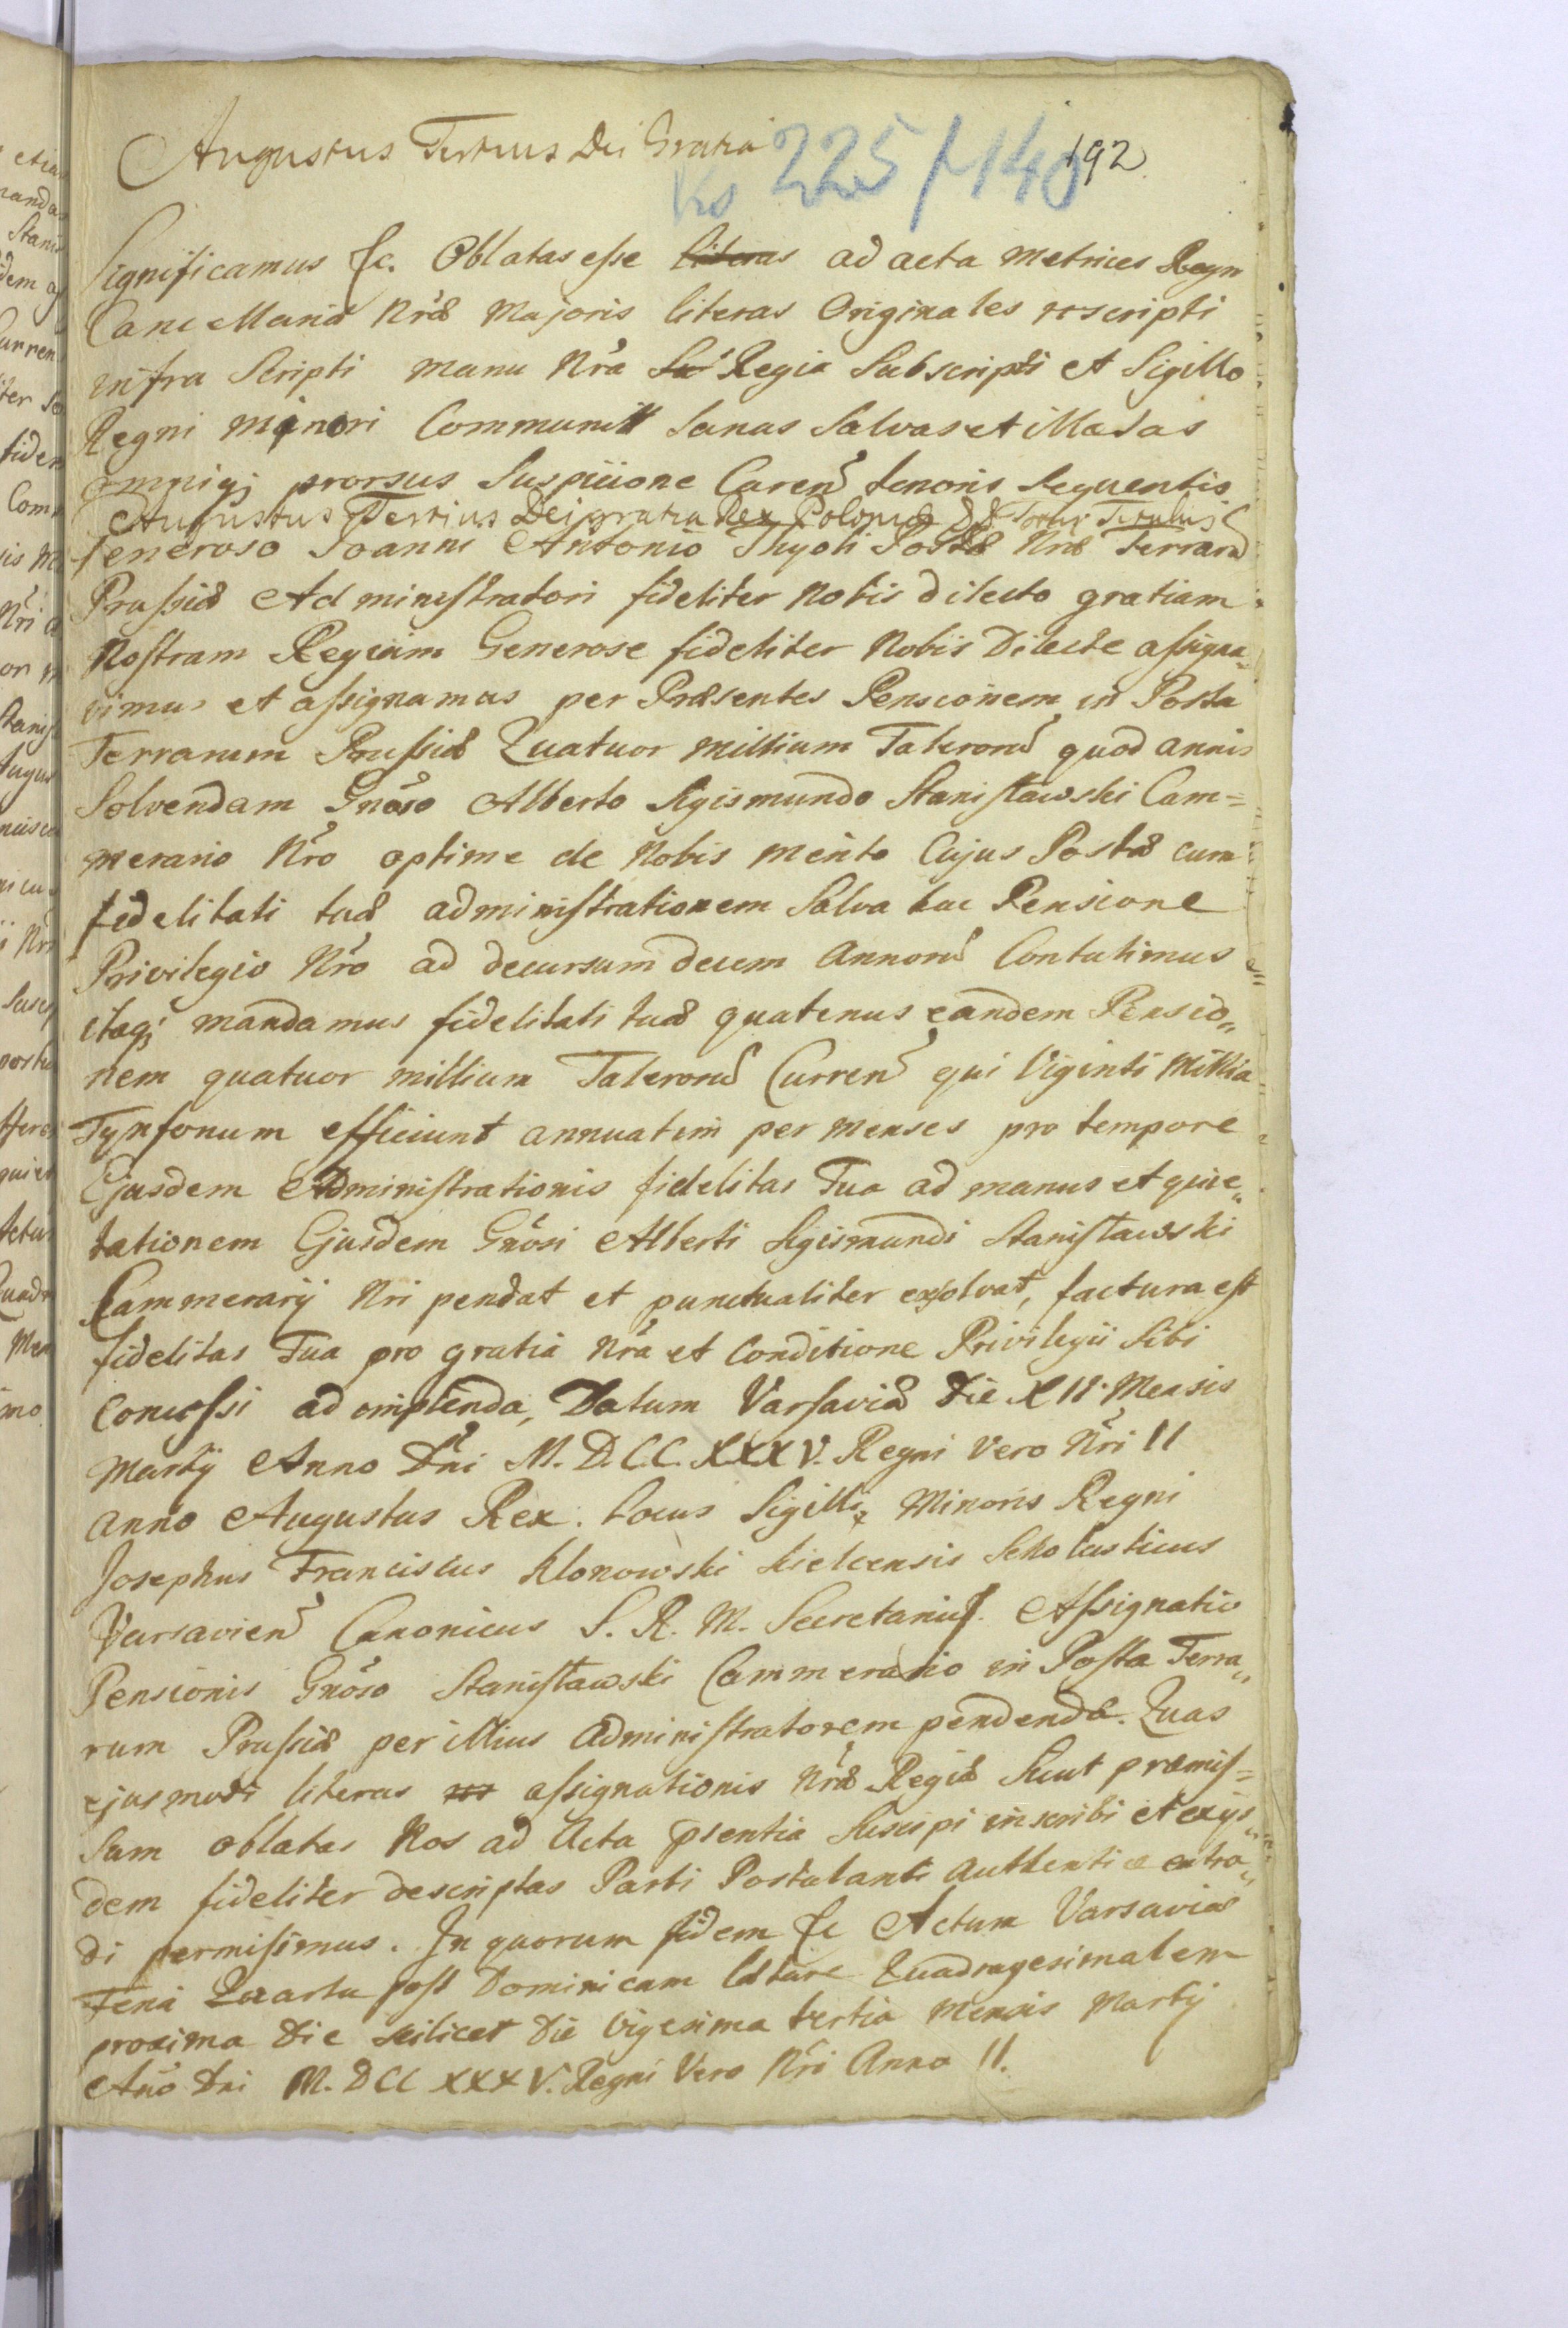 Augustus Tertius Dei Gratia
Ks 225/140
192
Significamus &c. Oblatas eſse literas ad acta metrices Regn
Cancellariæ Nr̃æ Majoris literas Originales rescripti
infra Scripti manu Nr̃a Regia Subscripti et Sigillo
Regni minori Communit Sanas Salvas et illæsas
omniq; prorsus Suspicione Caren̄ tenoris Sequentis
Augustus Tertius Dei gratia Rex Poloniæ && Totus Titulus
Generoso Joanni Antonio Thyoli Postæ Nr̃æ Terrarū
Pruſsiæ Administratori fideliter Nobis dilecto gratiam
Noſtram Regiam Generose fideliter Nobis Dilecte aſsigna„
vimus et aſsignamus per Præsentes Pensionem in Posta
Terrarum Pruſsiæ Quatuor millium Talerorū quod annis
Solvendam Gnõso Alberto Sigismundo Staniſławski Cam=
merario Nr̃o optime de Nobis merito Cujus Postæ cum
fidelitati tuæ adminiſtrationem Salva hac Pensione
Privilegio Nr̃o ad decursum decem Annorū Contulimus
itaq; mandamus fidelitati tuæ quatenus eandem Pensio„
nem quatuor millium Talerorū Curren̄ qui Viginti Millia
Tynfonum efficiunt annuatim per menses pro tempore
Ejusdem Adminiſtrationis fidelitas Tua ad manus et quie„
tationem Ejusdem Gnõsi Alberti Sigismundi Staniſławski
Cammerarij Nri pendat et punctualiter exolvat, factura eſt
fidelitas Tua pro gratia Nr̃a et Conditione Privilegii Sibi
Conceſsi ad omplenda, Datum Varſaviæ Die XII. Mensis
Martij Anno Dn̄i M.D.C.C.XXXV. Regni Vero Nr̃i II
Anno Augustus Rex. Locus Sigilli Minoris Regni
Josephus Franciscus Klonowski Kielcensis Scholasticus
Varsavien̄ Canonicus S. R. M. Secretarius. Aſsignatio
Pensionis Gnõso Staniſławski Cammerario in Poſta Terra„
rum Pruſsiæ per illius Adminiſtratorem pendendæ. Quas
ejusmodi literas aſsignationis Nr̃æ Regiæ Sicut præmiſ=
Sum oblatas Nos ad Acta p̄sentia Suscipi inscribi et exijs„
dem fideliter descriptas Parti Postulanti Authentice extra„
di permiſimus. In quorum fidem &c Actum Varsaviæ
Feria Quarta post Dominicam Lætare Quadragesimalem
proxima die scilicet Die Vigesima tertia Mensis Martij
Año Dni M.DCC XXXV. Regni Vero Nr̃i Anno II.